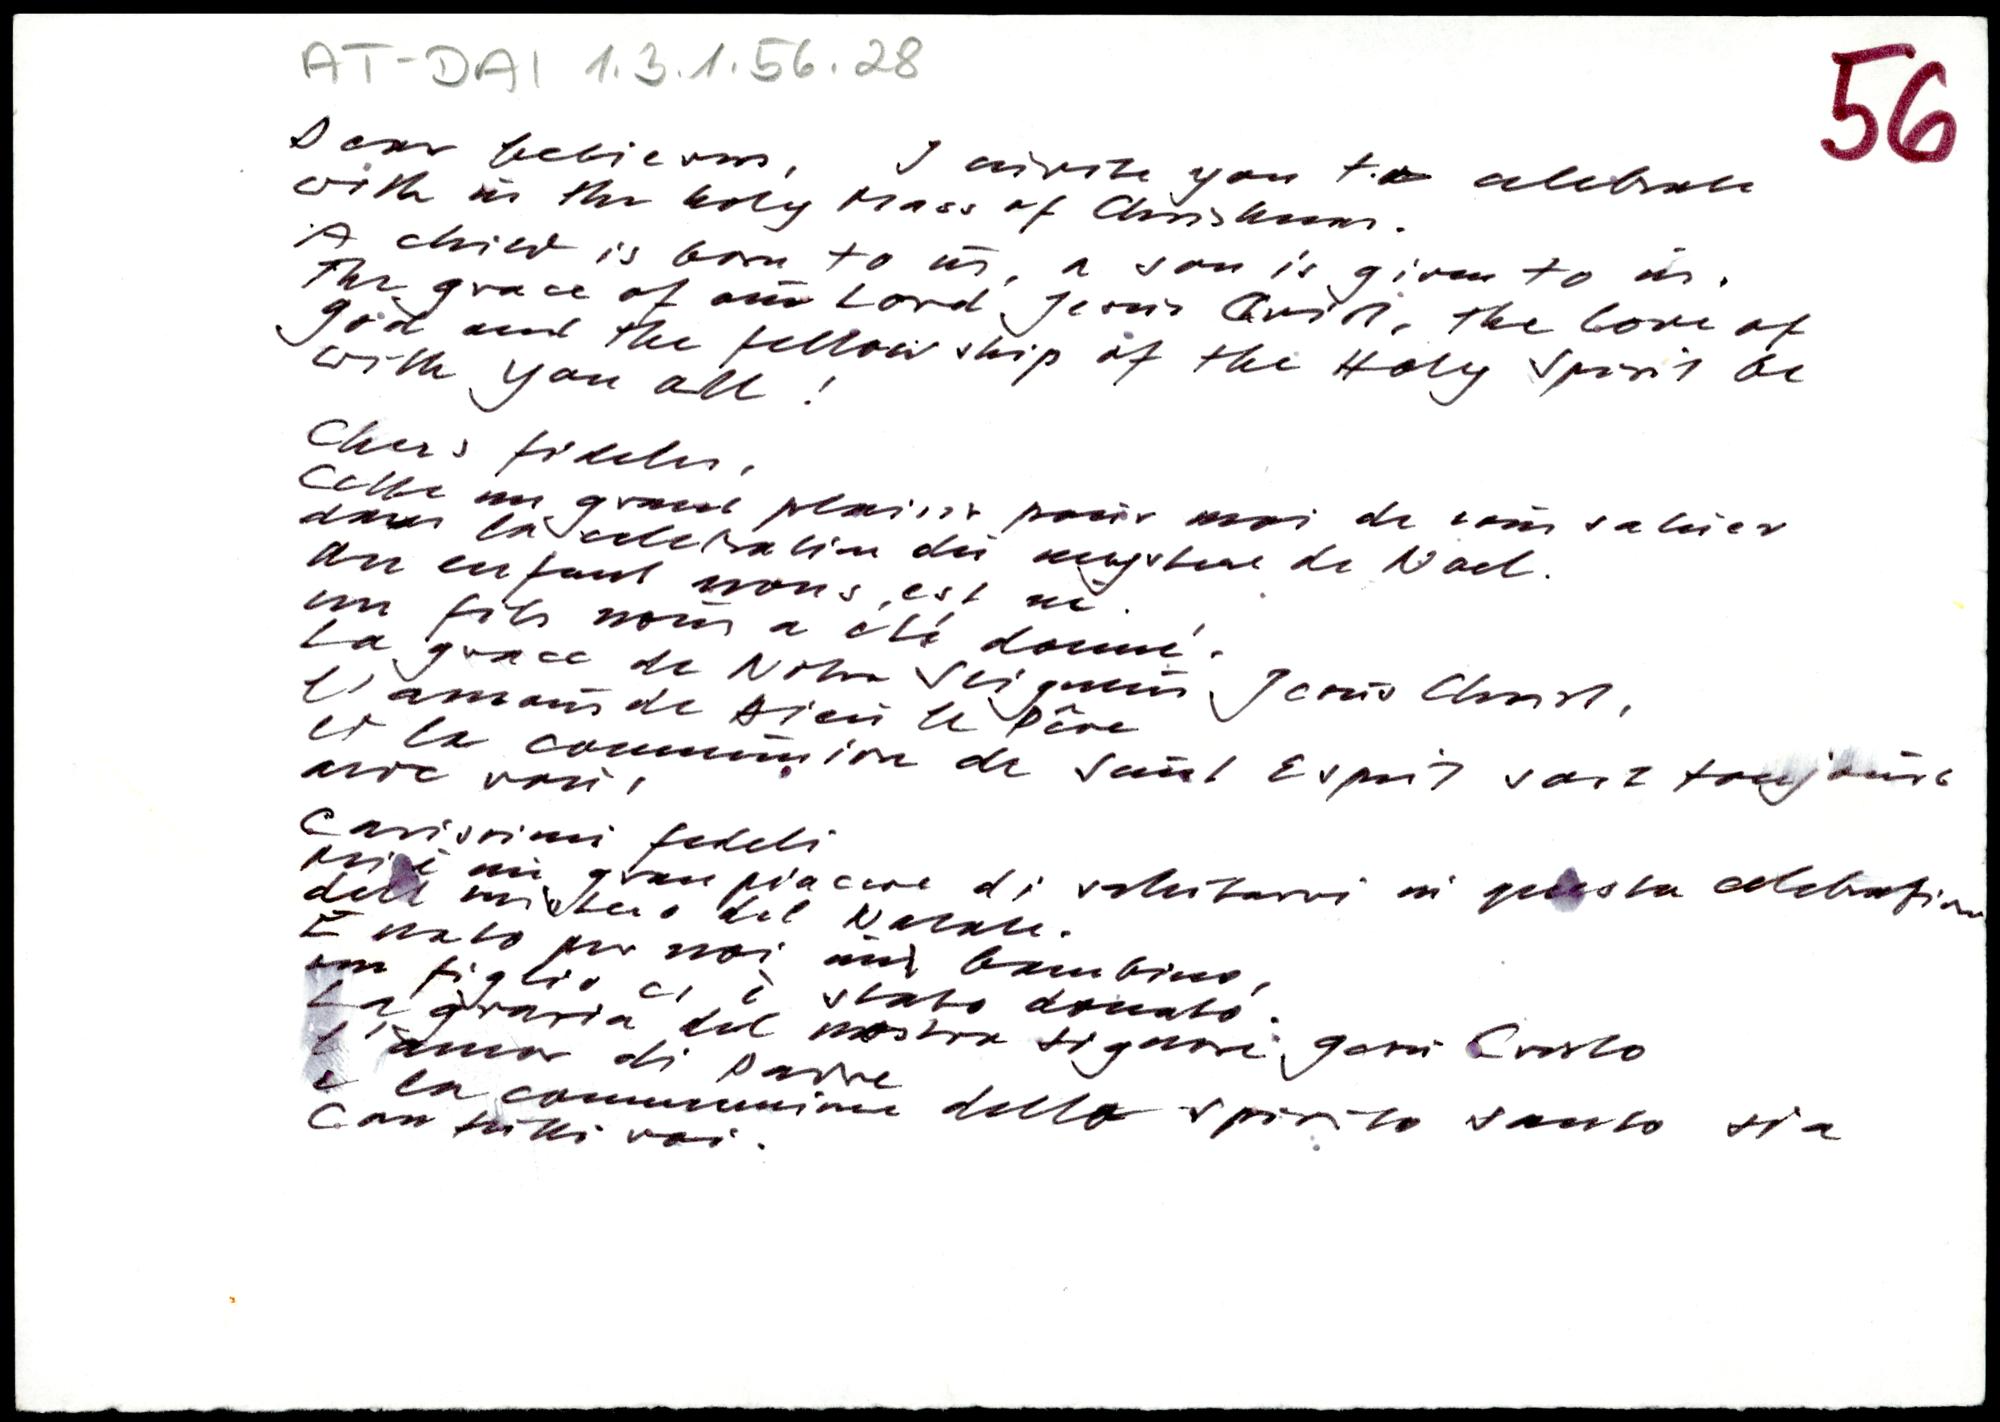 AT-DAI 1.3.1.56.28
56
Dear believers, I invite you to celebrate
with us the holy Mass of Christmas.
A child is born to us, a son is given to us.
The grace of our Lord Jesus Christ, the love of
God and the fellowship of the Holy Spirit be
with you all!
Chers fideles,
Cette un grand plaisir pour moi de vous saluer
dans la celebration du mystere de Noel.
Un enfant nous est né.
un fils nous a été donné.
La grace de Notre Seigneur Jesus Christ,
L'amour de Dieu le Père
et la communion de Saint Esprit soit toujours
avec vous!
Carissimi fedeli
Mi è un gran piacere di salutarvi in questa celebrazione
dell mistero del Natale.
È nato per noi un bambino,
un figlio ci è stato donato.
La grazia del nostro Signore Gesù Cristo
L'amor di Padre
e la communione dello spirito santo sia
con tutti voi.